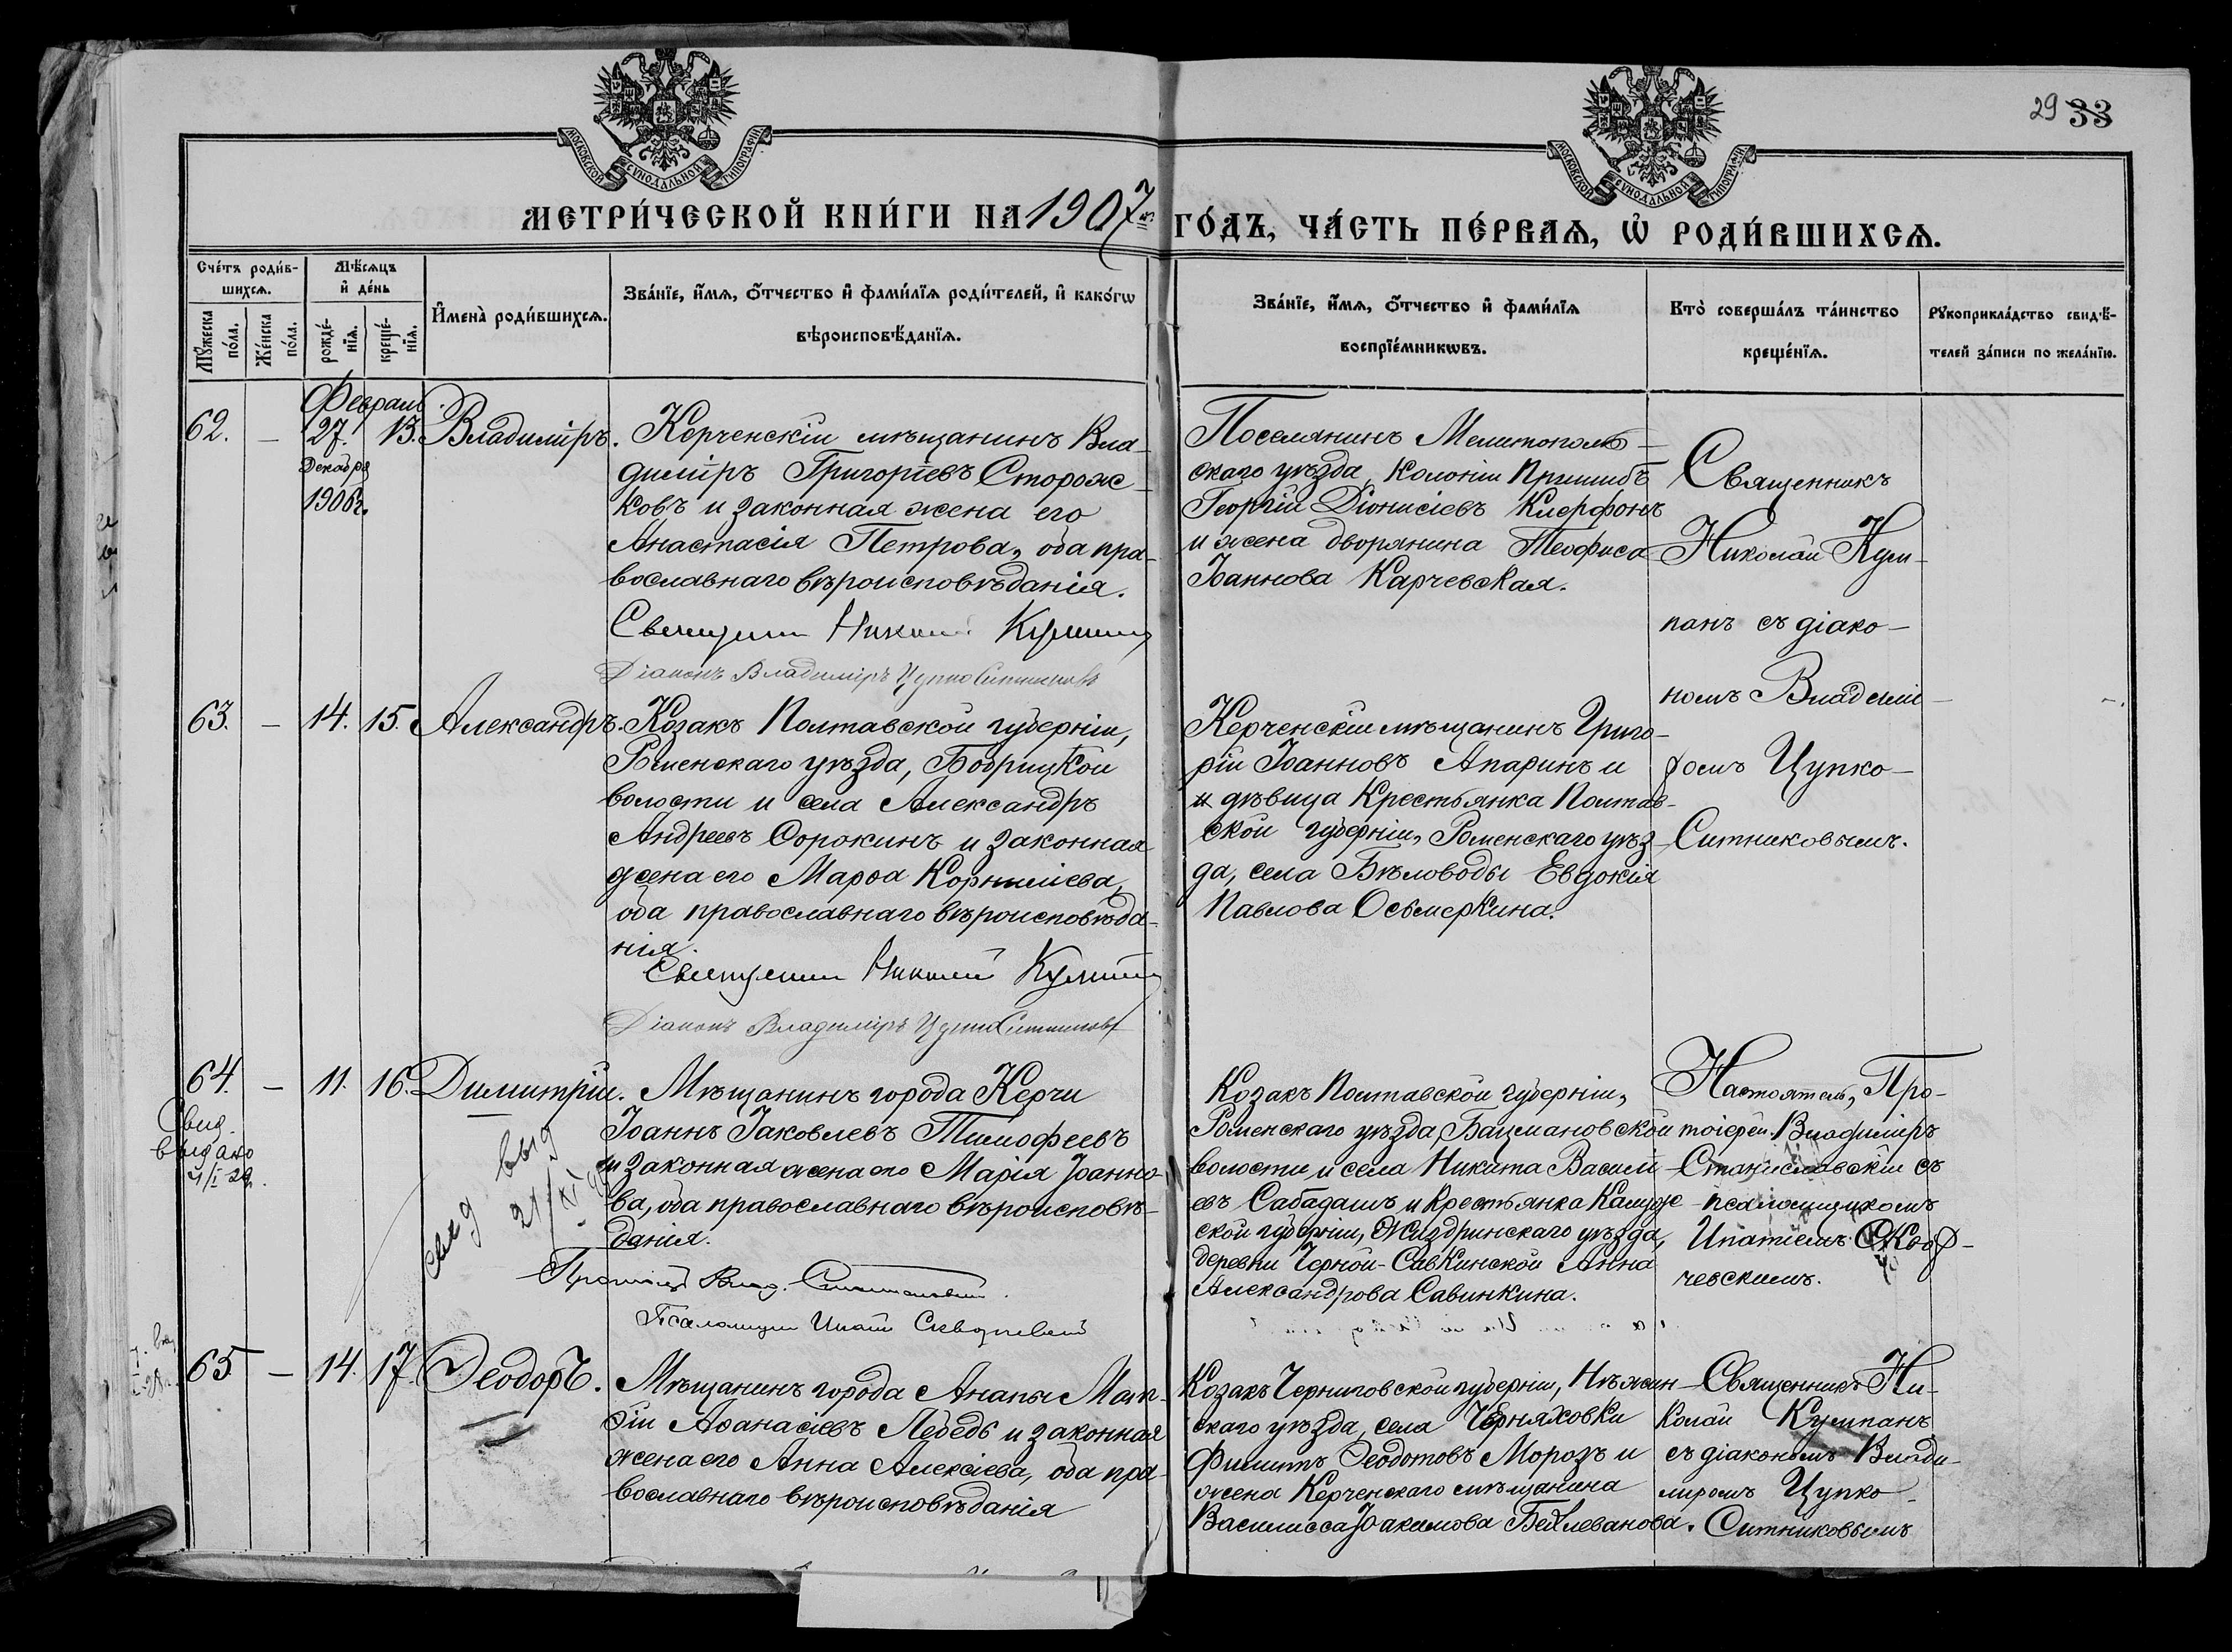 29 33
МОСКОВСКОЙ СѴНОДАЛЬНОЙ ТИПОГРАФІИ
МОСКОВСКОЙ СѴНОДАЛЬНОЙ ТИПОГРАФІИ
МЕТРИ́ЧЕСКОЙ КНИ́ГИ НА 1907й ГО́ДЪ, ЧА́СТЬ ПЕ́РВАѦ, Ѡ҆ РОДИ́ВШИХСѦ.
Сче́тъ роди́в-
шихсѧ.
Мѣ́сѧцъ
и҆ де́нь
Мꙋ́жеска
по́ла.
Же́нска
по́ла.
рожде́-
нїѧ.
креще́-
нїѧ.
И҆мена̀ роди́вшихсѧ.
Зва́нїе, и҆́мѧ, ѻ҆́тчество и҆ фами́лїѧ роди́телей, и҆ како́гѡ
вѣроисповѣ́данїѧ.
Зва́нїе, и҆́мѧ, ѻ҆́тчество и҆ фами́лїѧ
воспрїе́мникѡвъ.
Кто̀ соверша́лъ та́инство
креще́нїѧ.
Рꙋкоприкла́дство свидѣ́-
телей за́писи по жела́нїю.
Февраль
62. — 27. 13. Владиміръ.
Декабря
1906г.
Керченскій мѣщанинъ Вла-
димiръ Григорiевъ Сторож-
ковъ и законная жена его
Анастасія Петрова, оба пра-
вославнаго вѣроисповѣданія.
Священникъ Николай Кумпанъ
Діаконъ Владиміръ Цупко Ситниковъ
Поселянинъ Мелитополь-
скаго уѣзда, колоніи Пришибъ
Георгій Діонисіевъ Клерфонъ
и жена дворянина Теофиса
Іоаннова Карчевская.
Священникъ
Николай Кум-
панъ съ діако-
номъ Владимі-
ромъ Цупко-
Ситниковымъ.
63. — 14. 15. Александръ.
Козакъ Полтавской губерніи,
Роменскаго уѣзда, Бобрицкой
волости и села Александръ
Андреевъ Сорокинъ и законная
жена его Марѳа Корниліева,
оба православнаго вѣроисповѣда-
нія.
Священникъ Николай Кумпанъ
Діаконъ Владиміръ Цупко Ситниковъ
Керченскій мѣщанинъ Григо-
рій Іоанновъ Апаринъ и
и дѣвица крестьянка Полтав-
ской губерніи, Роменскаго уѣз-
да, села Бѣловоды Евдокія
Павлова Осьмеркина.
64. — 11. 16. Димитрій.
Свид.
выдано
4/I 29.
свид выд
21/XI
Мѣщанинъ города Керчи
Іоаннъ Іаковлевъ Тимофеевъ
и законная жена его Марія Іоанно-
ва, оба православнаго вѣроисповѣ-
данія.
Протоіерей Влад. Станиславскій.
Псаломщикъ Ипатій Скворчевскій
Козакъ Полтавской губерніи,
Роменскаго уѣзда, Бацмановской
волости и села Никита Василі-
евъ Сабадашъ и крестьянка Калуж-
ской губерніи, Жиздринскаго уѣзда,
деревни Черной-Савкинской Анна
Александрова Савинкина.
Настоятель, Про-
тоіерей Владиміръ
Станиславскій съ
псаломщикомъ
Ипатіемъ Сквор-
чевскимъ.
65 — 14. 17. Ѳеодоръ.
Мѣщанинъ города Анапы Мат-
ѳій Аѳанасіевъ Лебедь и законная
жена его Анна Алексіева, оба пра-
вославнаго вѣроисповѣданія
Козакъ Черниговской губерніи, Нѣжин-
скаго уѣзда, села Черняховки
Филиппъ Ѳеодотовъ Морозъ и
жена Керченскаго мѣщанина
Василисса Іоакимова Бехлеванова.
Священникъ Ни-
колай Кумпанъ
съ діакономъ Влади-
миромъ Цупко-
Ситниковымъ